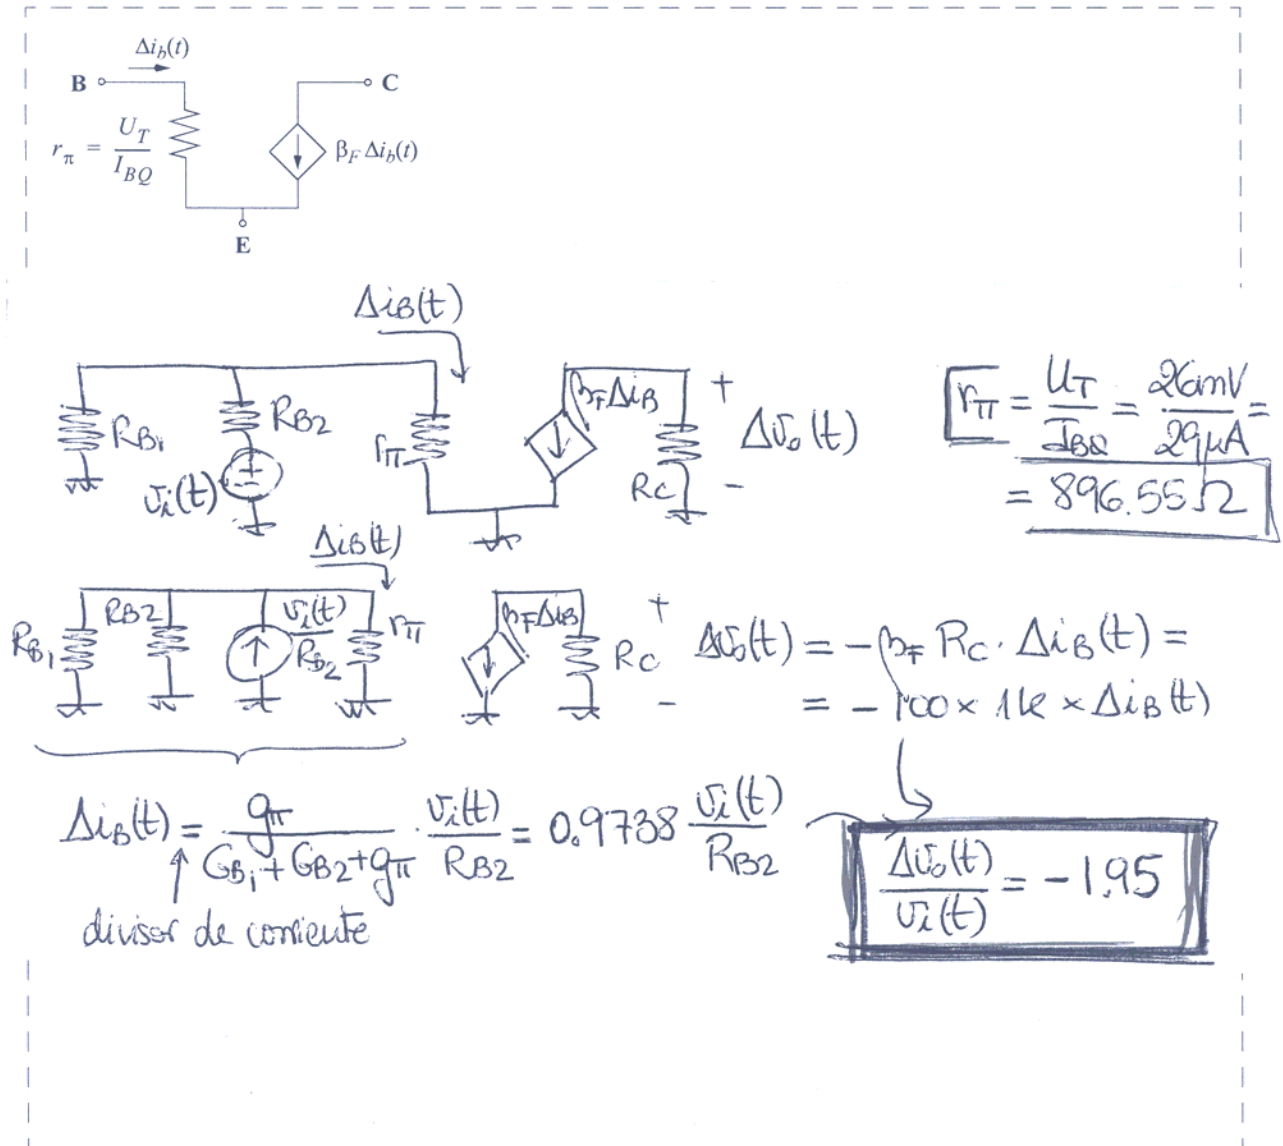 Δi_b(t)
B
C
r_π = U_T / I_BQ
β_F Δi_b(t)
E
Δi_B(t)
R_B1
R_B2
v_i(t)
+
-
r_π
β_F Δi_B
R_C
+
-
Δv_o(t)
r_π = U_T / I_BQ = 26mV / 29μA =
= 896.55 Ω
Δi_B(t)
R_B1
R_B2
v_i(t) / R_B2
r_π
β_F Δi_B
R_C
+
-
Δv_o(t) = -β_F R_C · Δi_B(t) =
= -100 × 1k × Δi_B(t)
Δi_B(t) = g_π / (G_B1 + G_B2 + g_π) · v_i(t) / R_B2 = 0.9738 v_i(t) / R_B2
divisor de corriente
Δv_o(t) / v_i(t) = -1.95